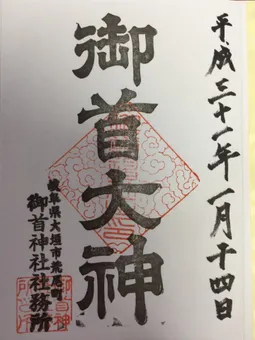 平成三十一年一月十四日
御首大神
岐阜県大垣市荒尾町
御首神社社務所